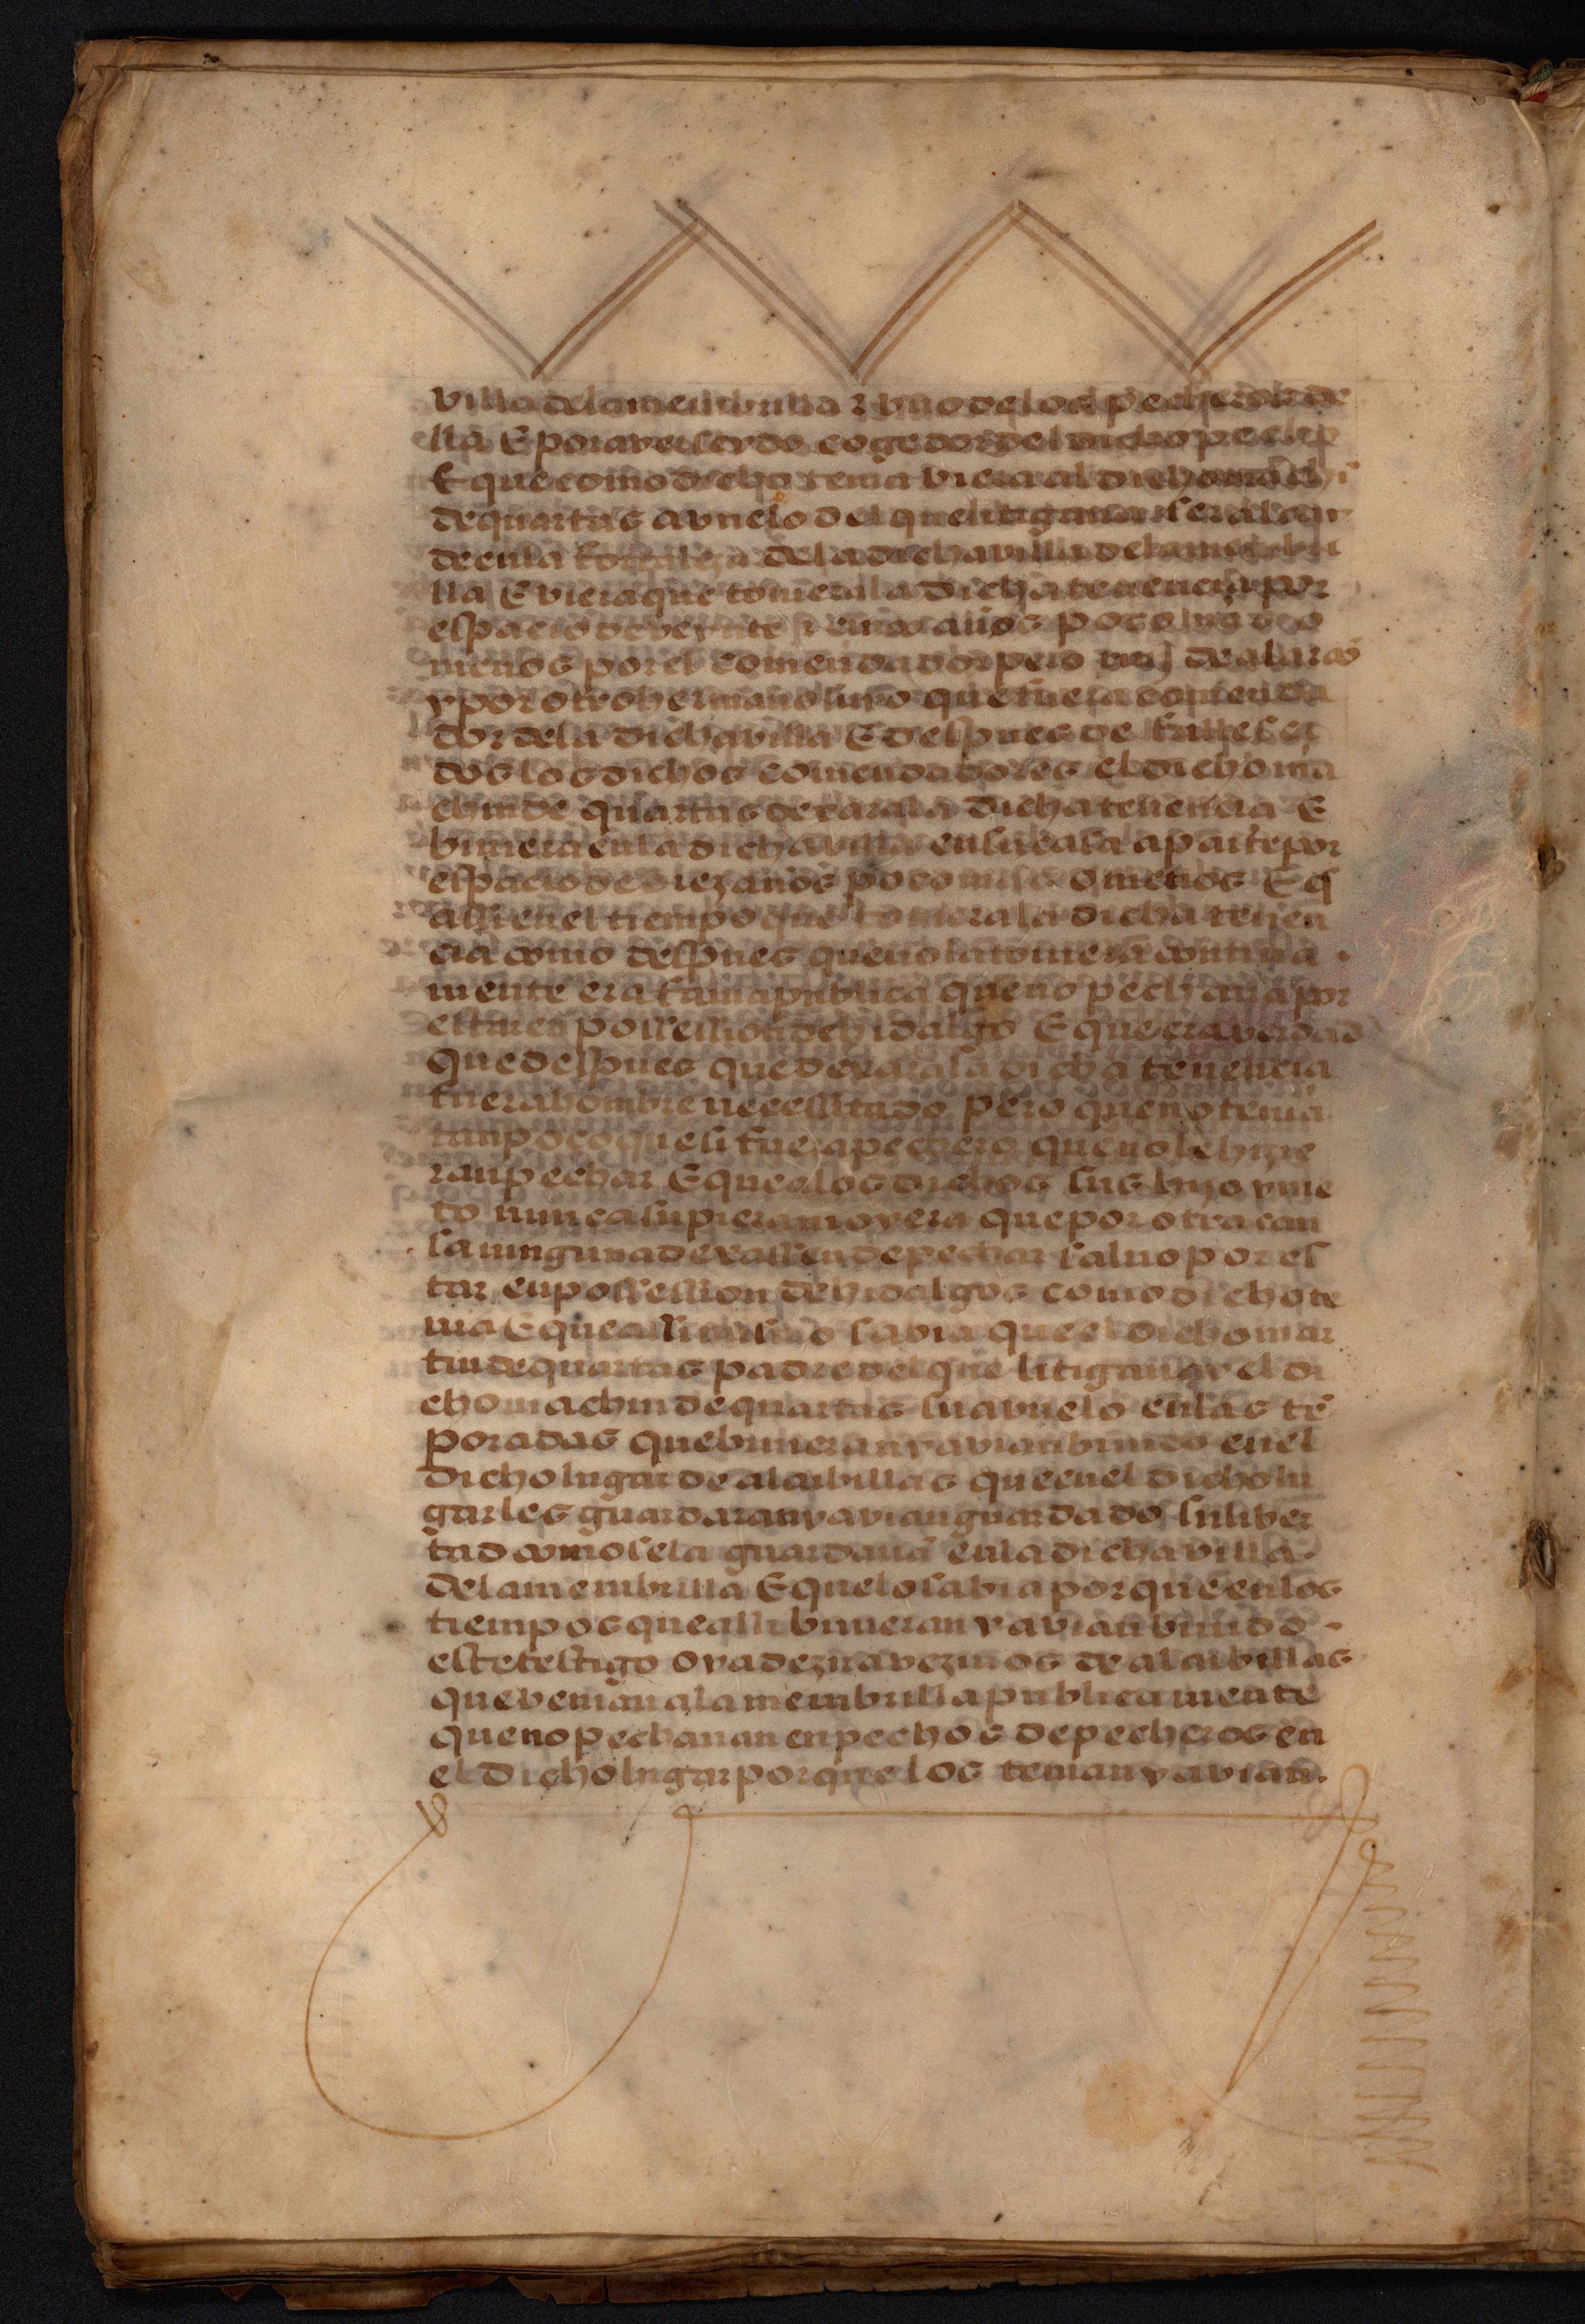 villa dela membrilla z vno delos pecheros de
lla E por aver seydo cogedor del dicho pecho
E que como dicho tenia viera al dicho machī
de quartas avuelo del que litigaua ser alcay
de enla fortaleza dela dicha villa dela membri
lla E viera que touiera la dicha tenencia por
espacio de veynte años poco mas o
menos por el comendador pero de alarcō
y por otro hermano suyo que fuera comenda
dor dela dicha villa E despues de fallesci
dos los dichos comendadores el dicho ma
chin de quartas dexara la dicha tenencia E
biuiera enla dicha villa en su casa aparte por
espacio de diez años poco mas o menos E q̄
assi enel tiempo que touiera la dicha tenen
cia como despues que no la touiera continua
mente era fama publica que no pechaua por
estar en possession de hidalgo E que era verdad
que despues que dexara la dicha tenencia
fuera hombre necessitado pero que no tenia
tan poco que si fuera pechero que no le hizie
ran pechar E que a los dichos sus hijo y nie
to nunca supiera ni oyera que por otra cau
sa ninguna dexassen de pechar saluo por es
tar en possession de hidalgos como dicho te
nia E que assi mismo sabia que el dicho mar
tin de quartas padre del que litigaua y el di
cho machin de quartas su avuelo enlas tē
poradas que biuieran y avian biuido enel
dicho lugar de alcubillas que enel dicho lu
gar les guardaran y avian guardado su liber
tad como se la guardaua enla dicha villa
dela membrilla E que lo sabia por que enlos
tiempos que alli biuieran y avian biuido
este testigo oya dezir a vezinos de alcubillas
que benian ala membrilla publicamente
que no pechauan en pechos de pecheros en
el dicho lugar por que los tenian y avian